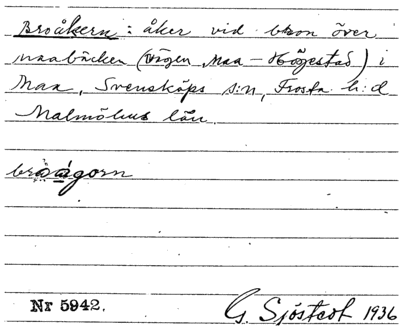 Broåkern: åker vid bron över
maabäcken (vägen Maa - Högestad) i
Maa, Svensköps s:n, Frosta h:d
Malmöhus län.
Nr 5942. G. Sjöstedt 1936